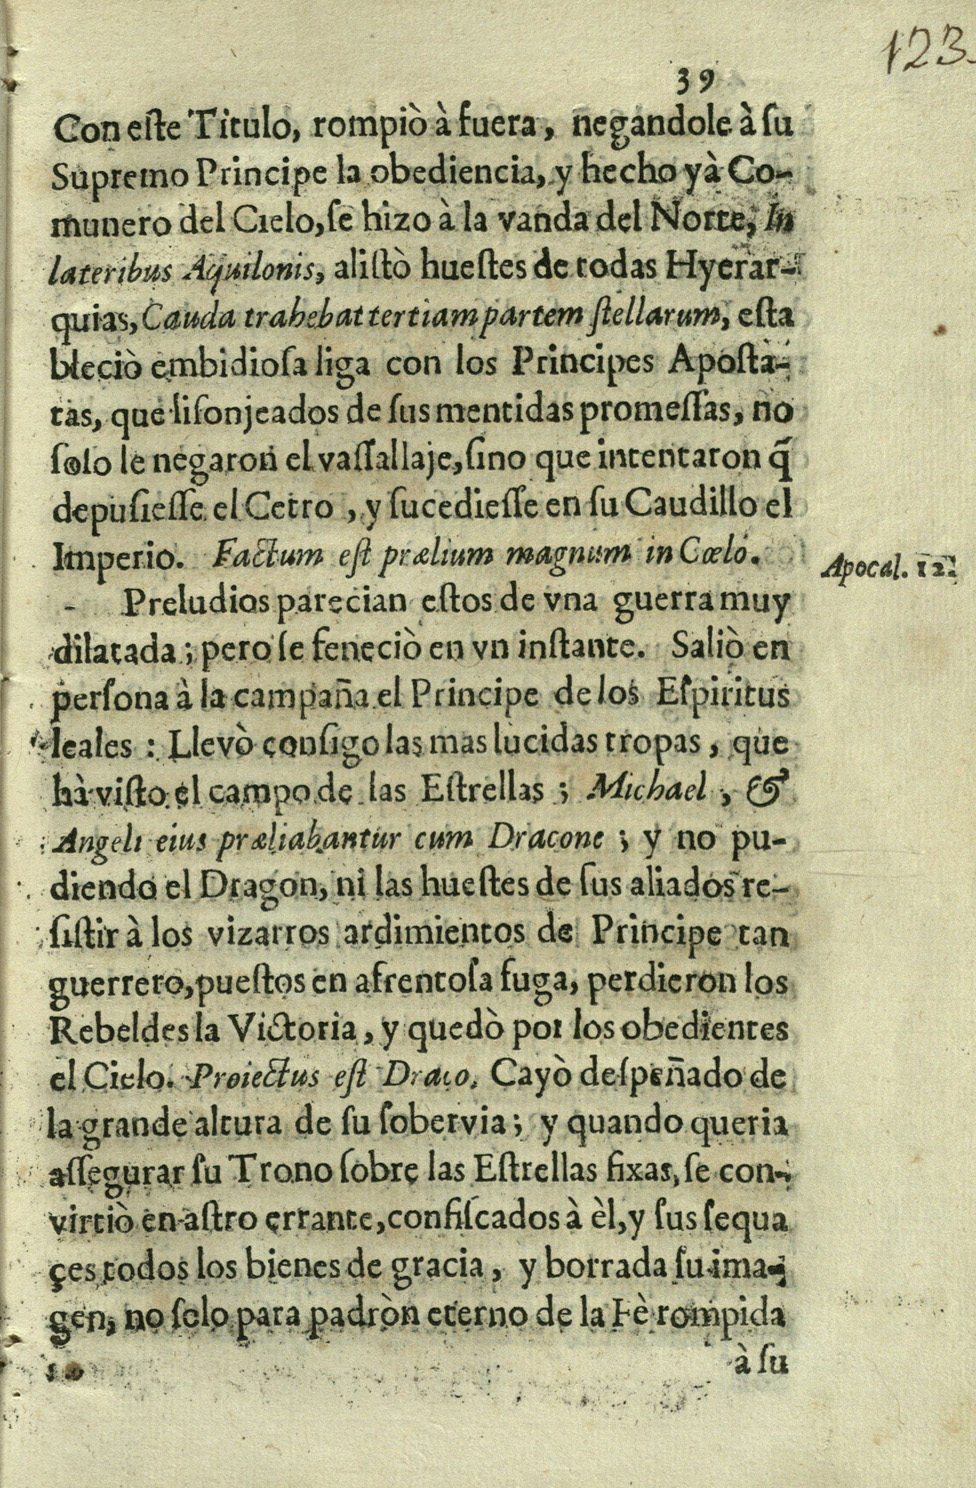 123.
39
Con este Titulo, rompiò à fuera, negandole à su
Supremo Principe la obediencia, y hecho yà Co-
munero del Cielo, se hizo à la vanda del Norte, In
lateribus Aquilonis, alistò huestes de todas Hyerar-
quias, Cauda trahebat tertiam partem stellarum, esta
bleciò embidiosa liga con los Principes Aposta-
tas, que lisonjeados de sus mentidas promessas, no
solo le negaron el vassallaje, sino que intentaron q̃
depusiesse el Cetro, y sucediesse en su Caudillo el
Imperio. Factum est prælium magnum in Cœlo.
Apocal. 12.
Preludios parecian estos de vna guerra muy
dilatada; pero se feneciò en vn instante. Saliò en
persona à la campaña el Principe de los Espiritus
leales: Llevò consigo las mas lucidas tropas, que
hà visto el campo de las Estrellas; Michael, &
Angeli eius præliabantur cum Dracone; y no pu-
diendo el Dragon, ni las huestes de sus aliados re-
sistir à los vizarros ardimientos de Principe tan
guerrero, puestos en afrentosa fuga, perdieron los
Rebeldes la Victoria, y quedò por los obedientes
el Cielo. Proiectus est Draco. Cayò despeñado de
la grande altura de su sobervia; y quando queria
assegurar su Trono sobre las Estrellas fixas, se con-
virtiò en astro errante, confiscados à èl, y sus sequa
çes todos los bienes de gracia, y borrada su ima-
gen, no solo para padròn eterno de la Fè rompida
à su